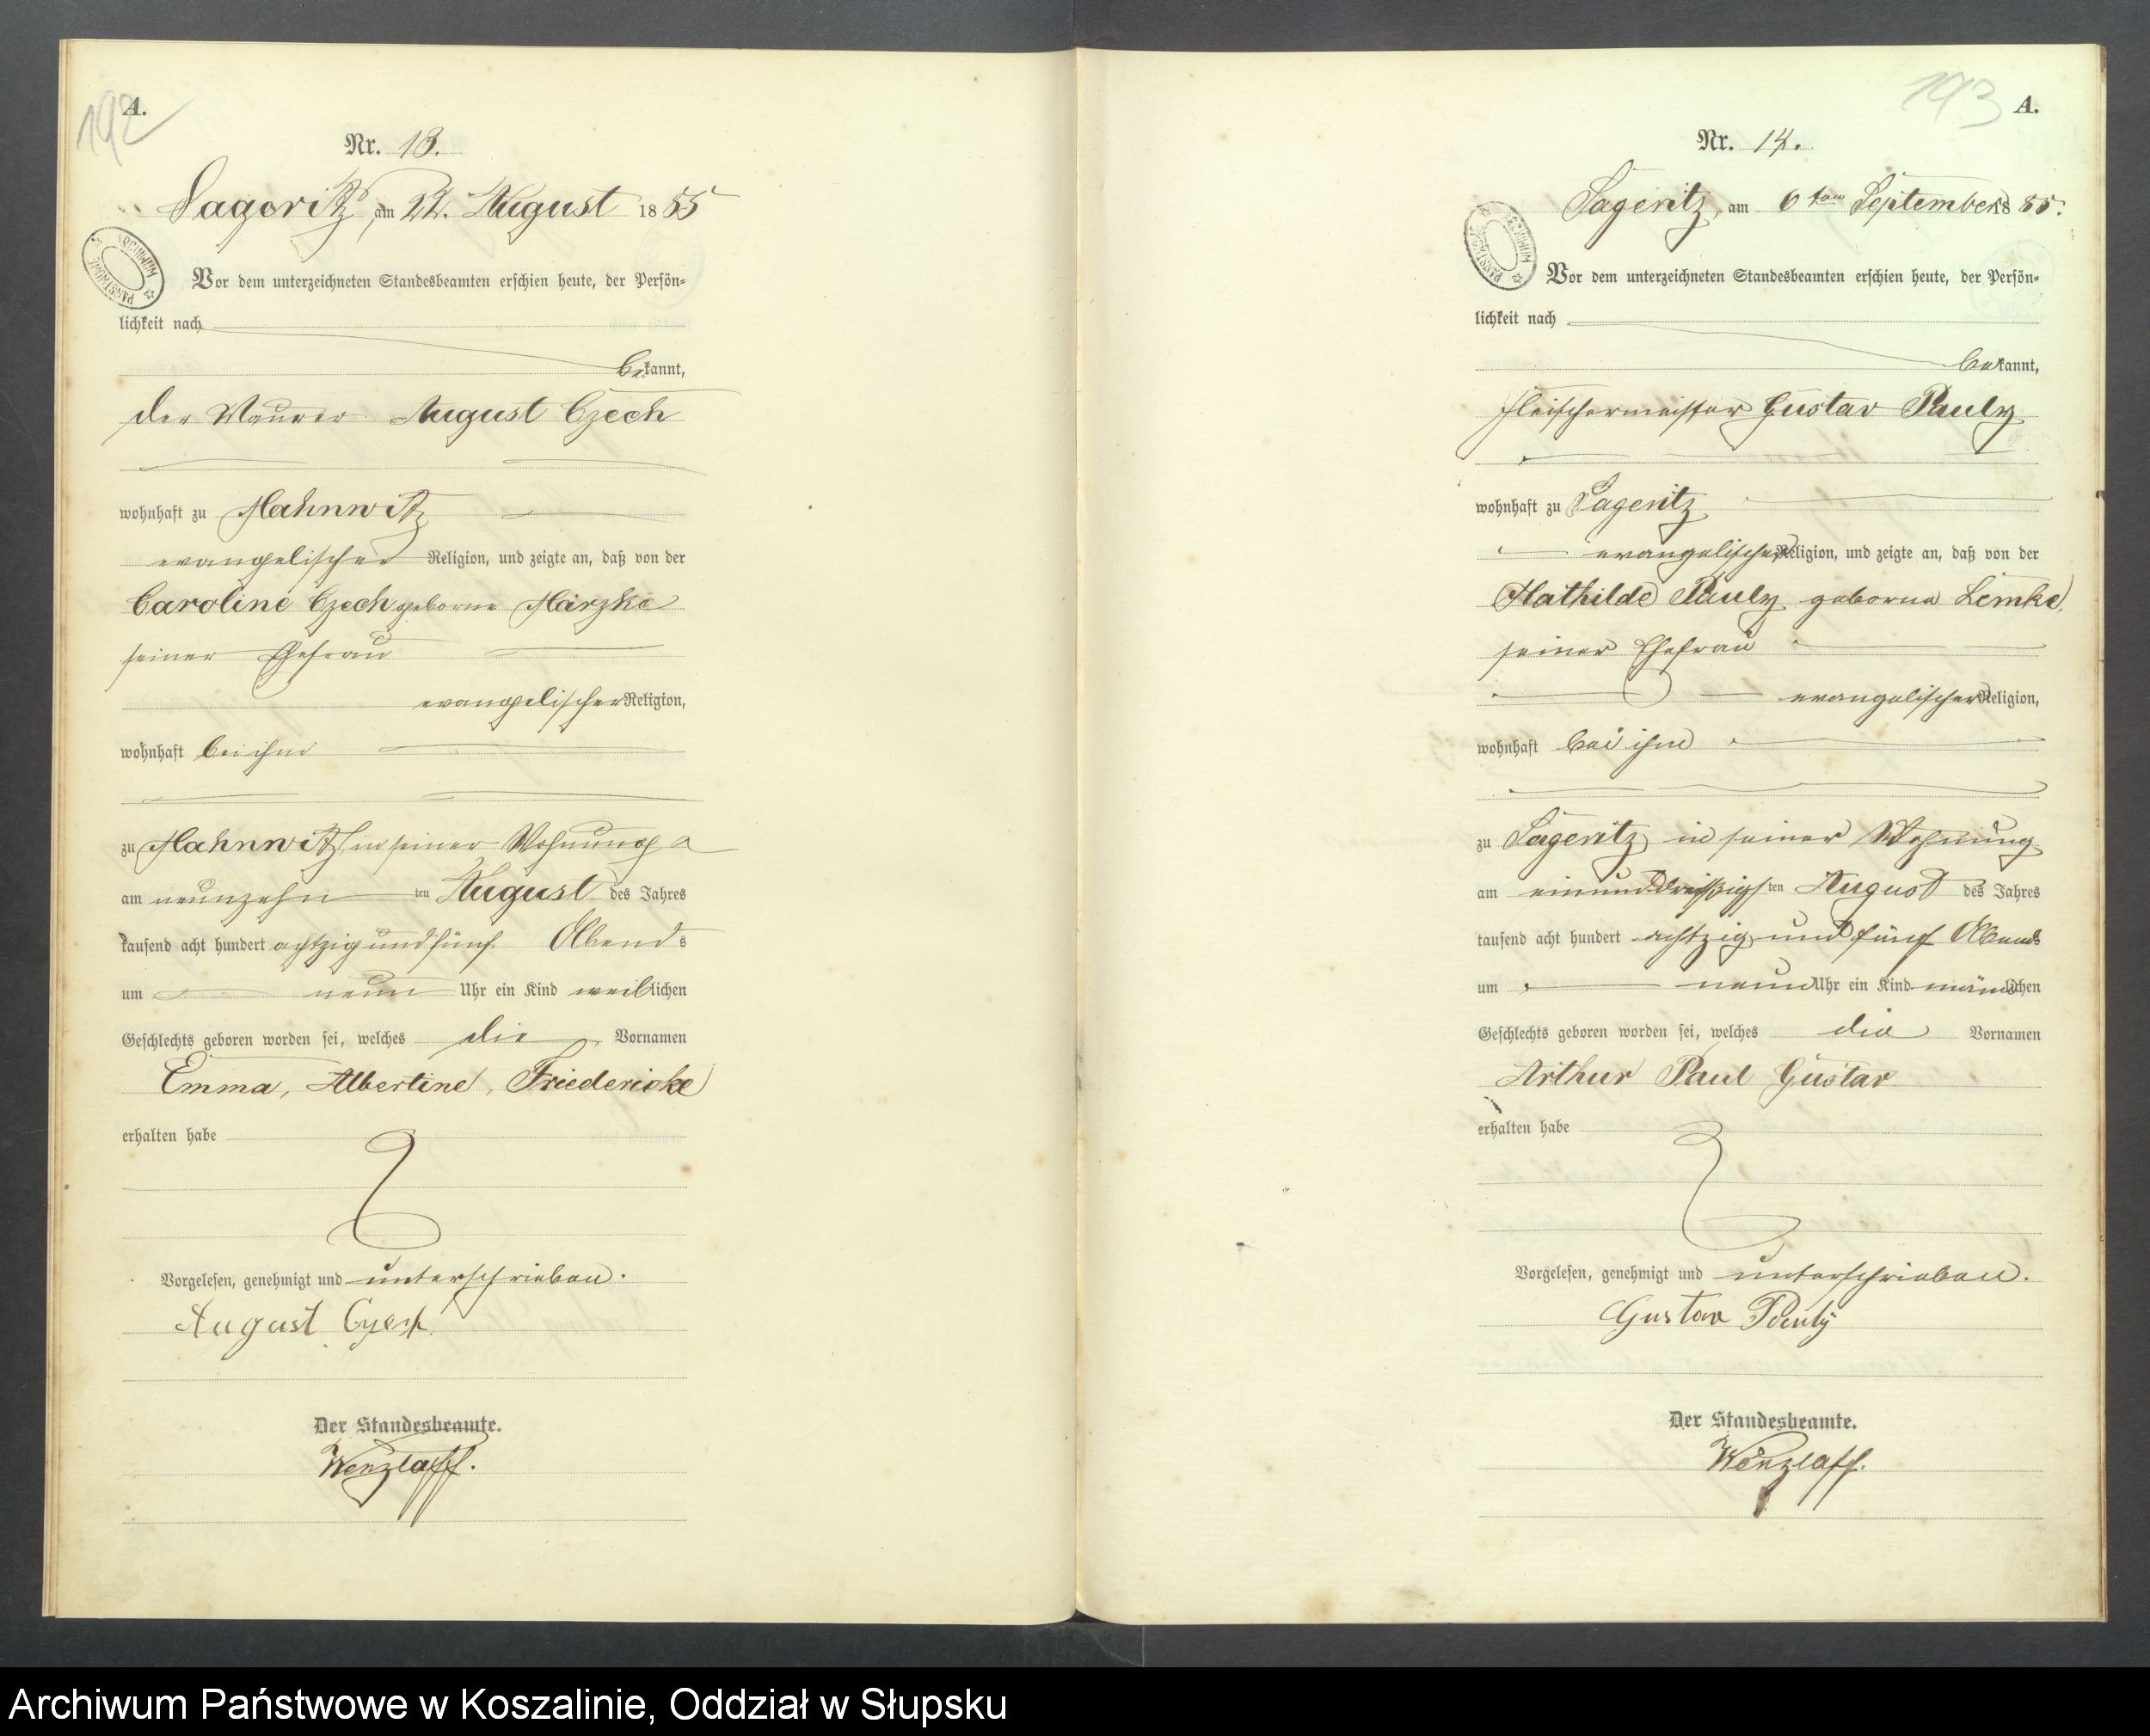 192
A.
Nr. 13.
Sageritz, am 22. August 1885
Vor dem unterzeichneten Standesbeamten erschien heute, der Persön-
lichkeit nach
bekannt,
der Maurer August Czech
wohnhaft zu Mahnwitz
evangelischer Religion, und zeigte an, daß von der
Caroline Czech geborne Marzke
seiner Ehefrau
evangelischer Religion,
wohnhaft bei ihm
zu Mahnwitz in seiner Wohnung
am neunzehn ten August des Jahres
tausend acht hundert achtzig und fünf Abends
um neun Uhr ein Kind weiblichen
Geschlechts geboren worden sei, welches die Vornamen
Emma, Albertine, Friedericke
erhalten habe
Vorgelesen, genehmigt und unterschrieben.
August Czech
Der Standesbeamte.
Wenzlaff.
193
A.
Nr. 14.
Sageritz, am 6ten September 1885.
Vor dem unterzeichneten Standesbeamten erschien heute, der Persön-
lichkeit nach
bekannt,
Fleischermeister Gustav Pauly
wohnhaft zu Sageritz
evangelischer Religion, und zeigte an, daß von der
Mathilde Pauly geborne Lemke,
seiner Ehefrau
evangelischer Religion,
wohnhaft bei ihm
zu Sageritz in seiner Wohnung
am einunddreißigsten August des Jahres
tausend acht hundert achtzig und fünf Abends
um neun Uhr ein Kind männlichen
Geschlechts geboren worden sei, welches die Vornamen
Arthur Paul Gustav
erhalten habe
Vorgelesen, genehmigt und unterschrieben.
Gustav Pauly
Der Standesbeamte.
Wenzlaff.
Archiwum Państwowe w Koszalinie, Oddział w Słupsku